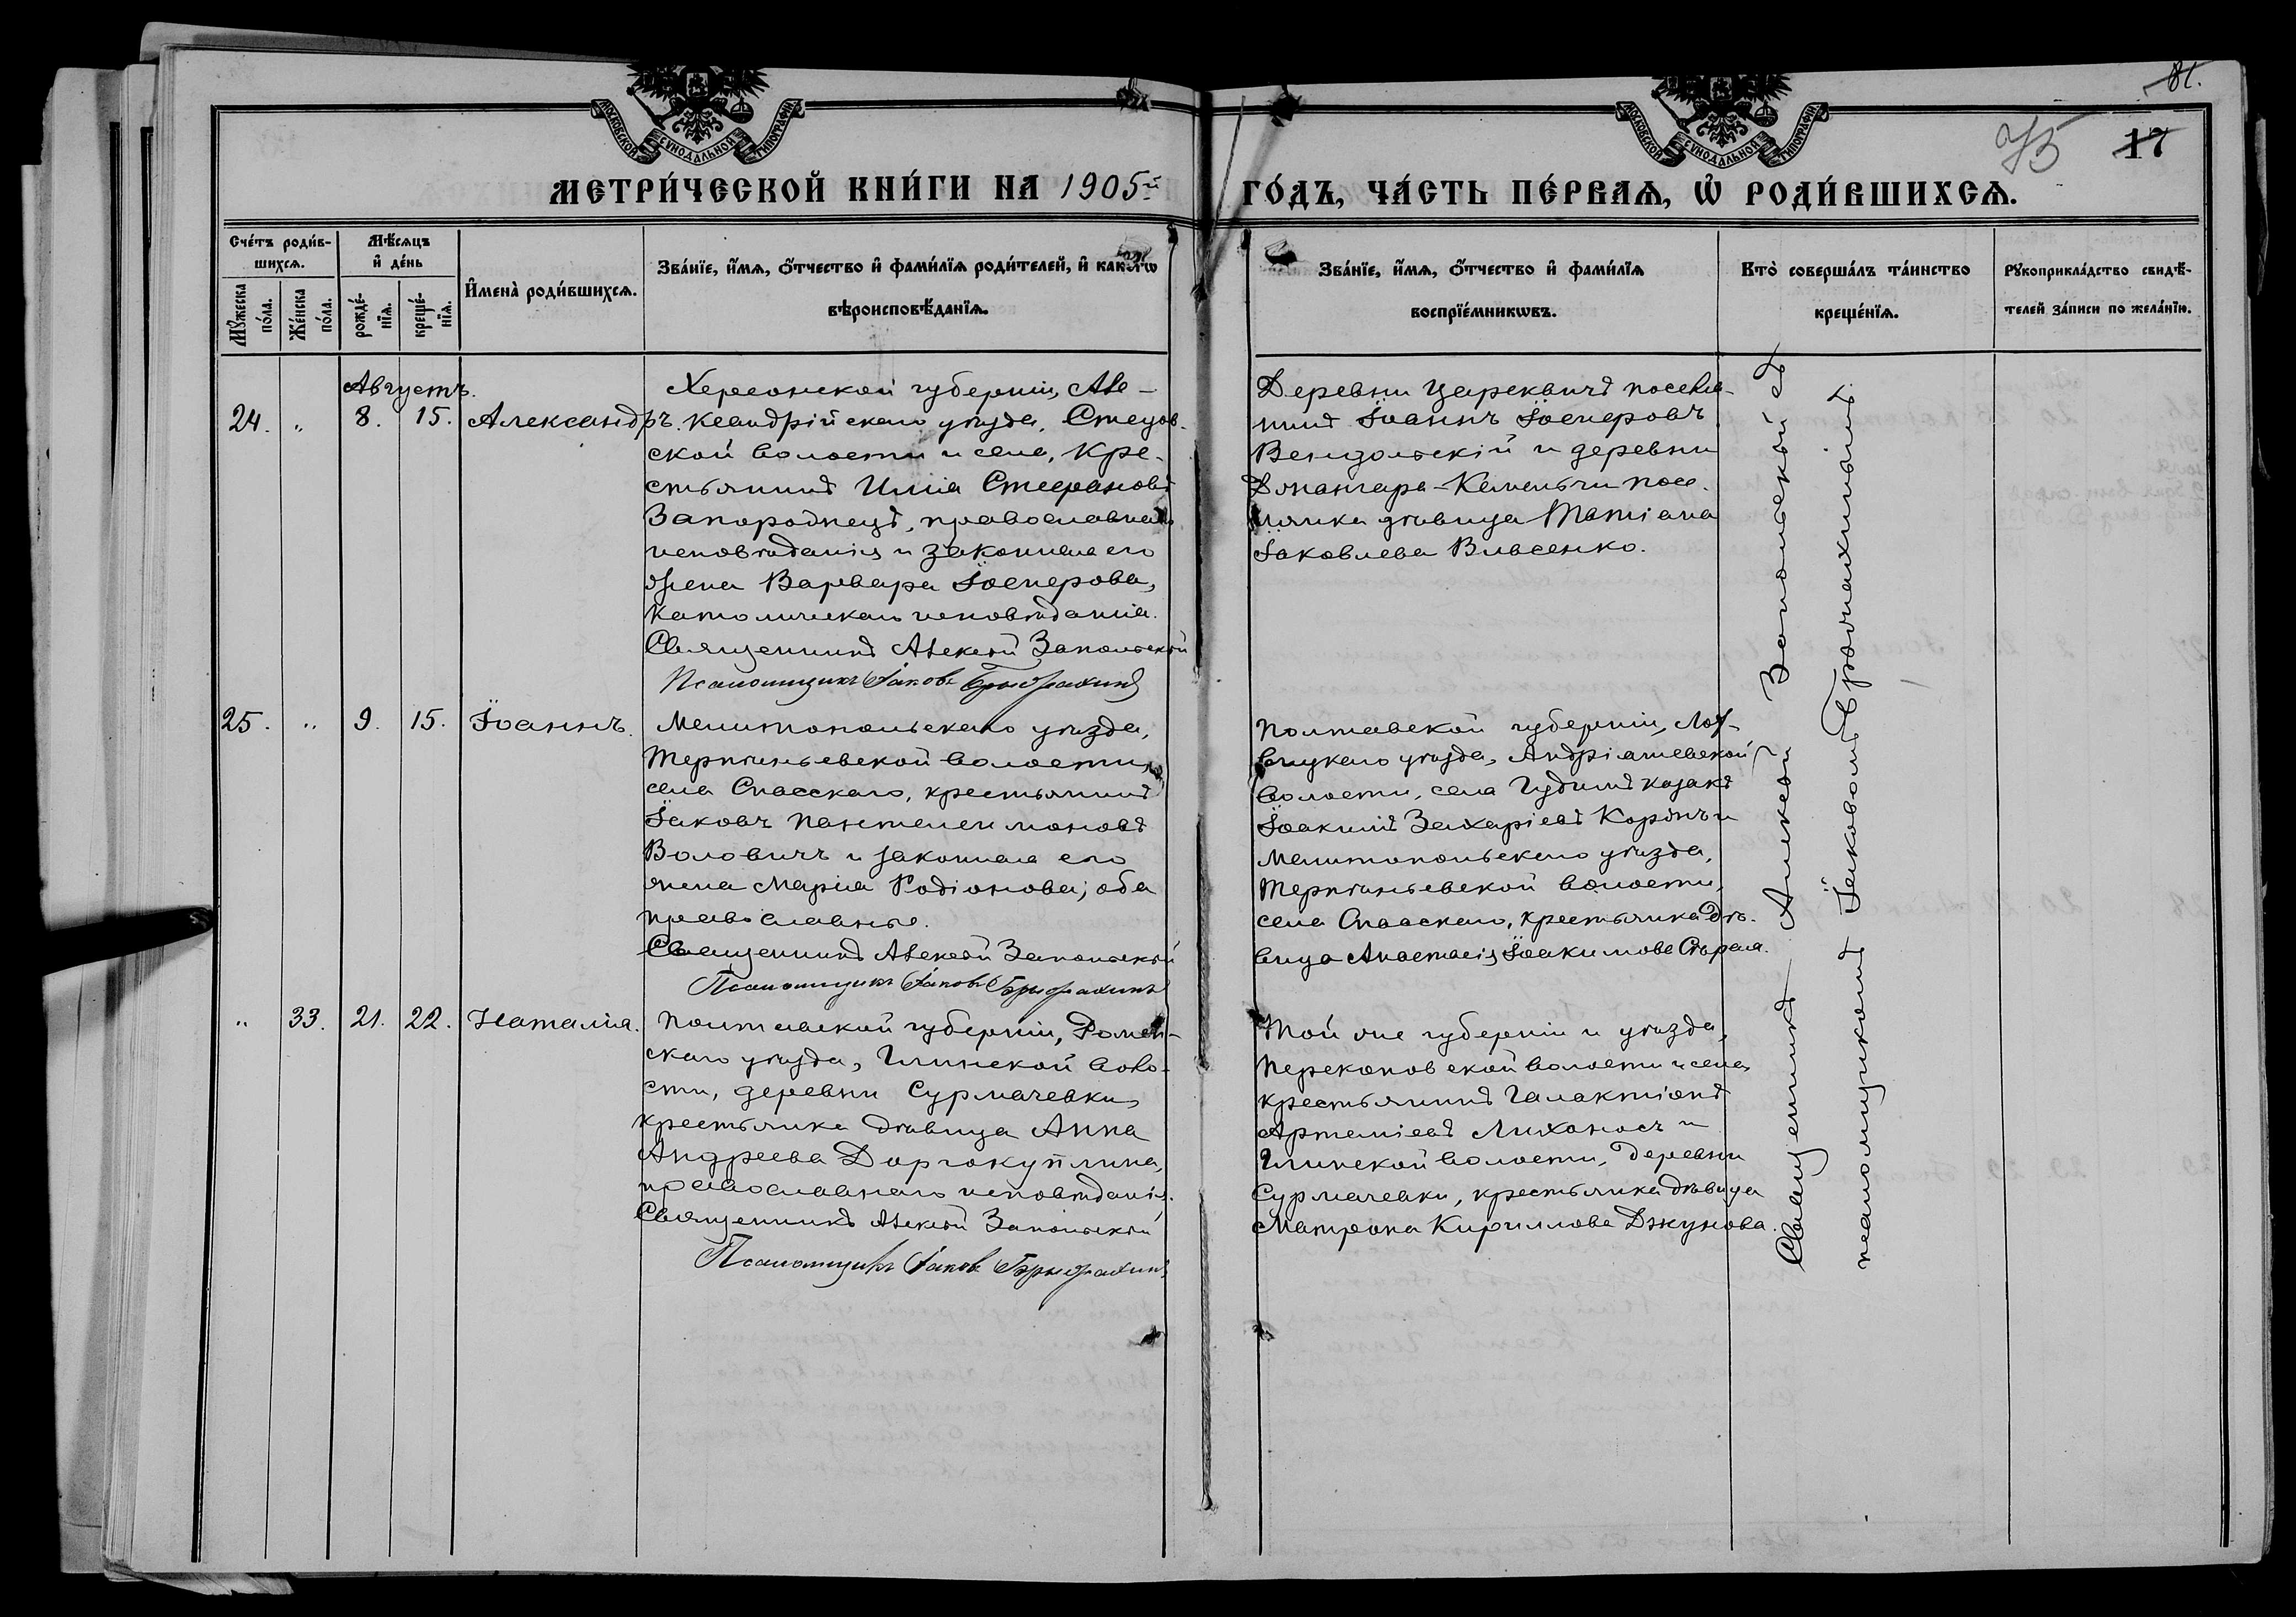 81.
75 17
МОСКОВСКОЙ СѴНОДАЛЬНОЙ ТИПОГРАФІИ
МОСКОВСКОЙ СѴНОДАЛЬНОЙ ТИПОГРАФІИ
МЕТРИ́ЧЕСКОЙ КНИ́ГИ НА 1905й ГО́ДЪ, ЧА́СТЬ ПЕ́РВАѦ, Ѡ҆ РОДИ́ВШИХСѦ.
Сче́тъ роди́в-
шихсѧ.
Мꙋ́жеска по́ла.
Же́нска по́ла.
Мѣ́сѧцъ
и҆ де́нь
рожде́-
нїѧ.
креще́-
нїѧ.
И҆мена̀ роди́вшихсѧ.
Зва́нїе, и҆́мѧ, ѻ҆́тчество и҆ фами́лїѧ роди́телей, и҆ како́гѡ
вѣроисповѣ́данїѧ.
Зва́нїе, и҆́мѧ, ѻ҆́тчество и҆ фами́лїѧ
воспрїе́мникѡвъ.
Кто̀ соверша́лъ та́инство
креще́нїѧ.
Рꙋкоприкла́дство свидѣ́-
телей за́писи по жела́нїю.
Августъ.
24. „ 8. 15. Александръ.
Херсонской губерніи, Але-
ксандрійскаго уѣзда, Стецов-
ской волости и села, кре-
стьянинъ Илія Стефановъ
Запорожецъ, православнаго
исповѣданія и законная его
жена Варвара Іосифова,
католическаго исповѣданія.
Священникъ Алексѣй Запольскій
Псаломщикъ Іаковъ
Деревни Цареквичъ поселя-
нинъ Іоаннъ Іосифовъ
Вензольскій и деревни
Джангара-Кемельчи посе-
лянка дѣвица Татіана
Іаковлева Вивсенко.
25. „ 9. 15. Іоаннъ.
Мелитопольскаго уѣзда,
Терпѣньевской волости,
села Спасскаго, крестьянинъ
Іаковъ Пантелеимоновъ
Воловичъ и законная его
жена Марія Родіонова; оба
православные.
Священникъ Алексѣй Запольскій
Псаломщикъ Іаковъ
Полтавской губерніи, Лох-
вицкаго уѣзда, Андріяшевской
волости, села Гудимъ козакъ
Іоакимъ Захаріевъ Коржъ и
Мелитопольскаго уѣзда,
Терпѣньевской волости,
села Спасскаго, крестьянка дѣ-
вица Анастасія Іоакимова
„ 33. 21. 22. Наталія.
Полтавской губерніи, Ромен-
скаго уѣзда, Глинской воло-
сти, деревни Сурмачевки,
крестьянка дѣвица Анна
Андреева
православнаго исповѣданія.
Священникъ Алексѣй Запольскій
Псаломщикъ Іаковъ
Той же губерніи и уѣзда,
Перекоповской волости и села,
крестьянинъ Галактіонъ
Артеміевъ Лихоносъ и
Глинской волости, деревни
Сурмачевки, крестьянка дѣвица
Матрона Кириллова Джунова.
Священникъ Алексѣй Запольскій съ
псаломщикомъ Іаковомъ